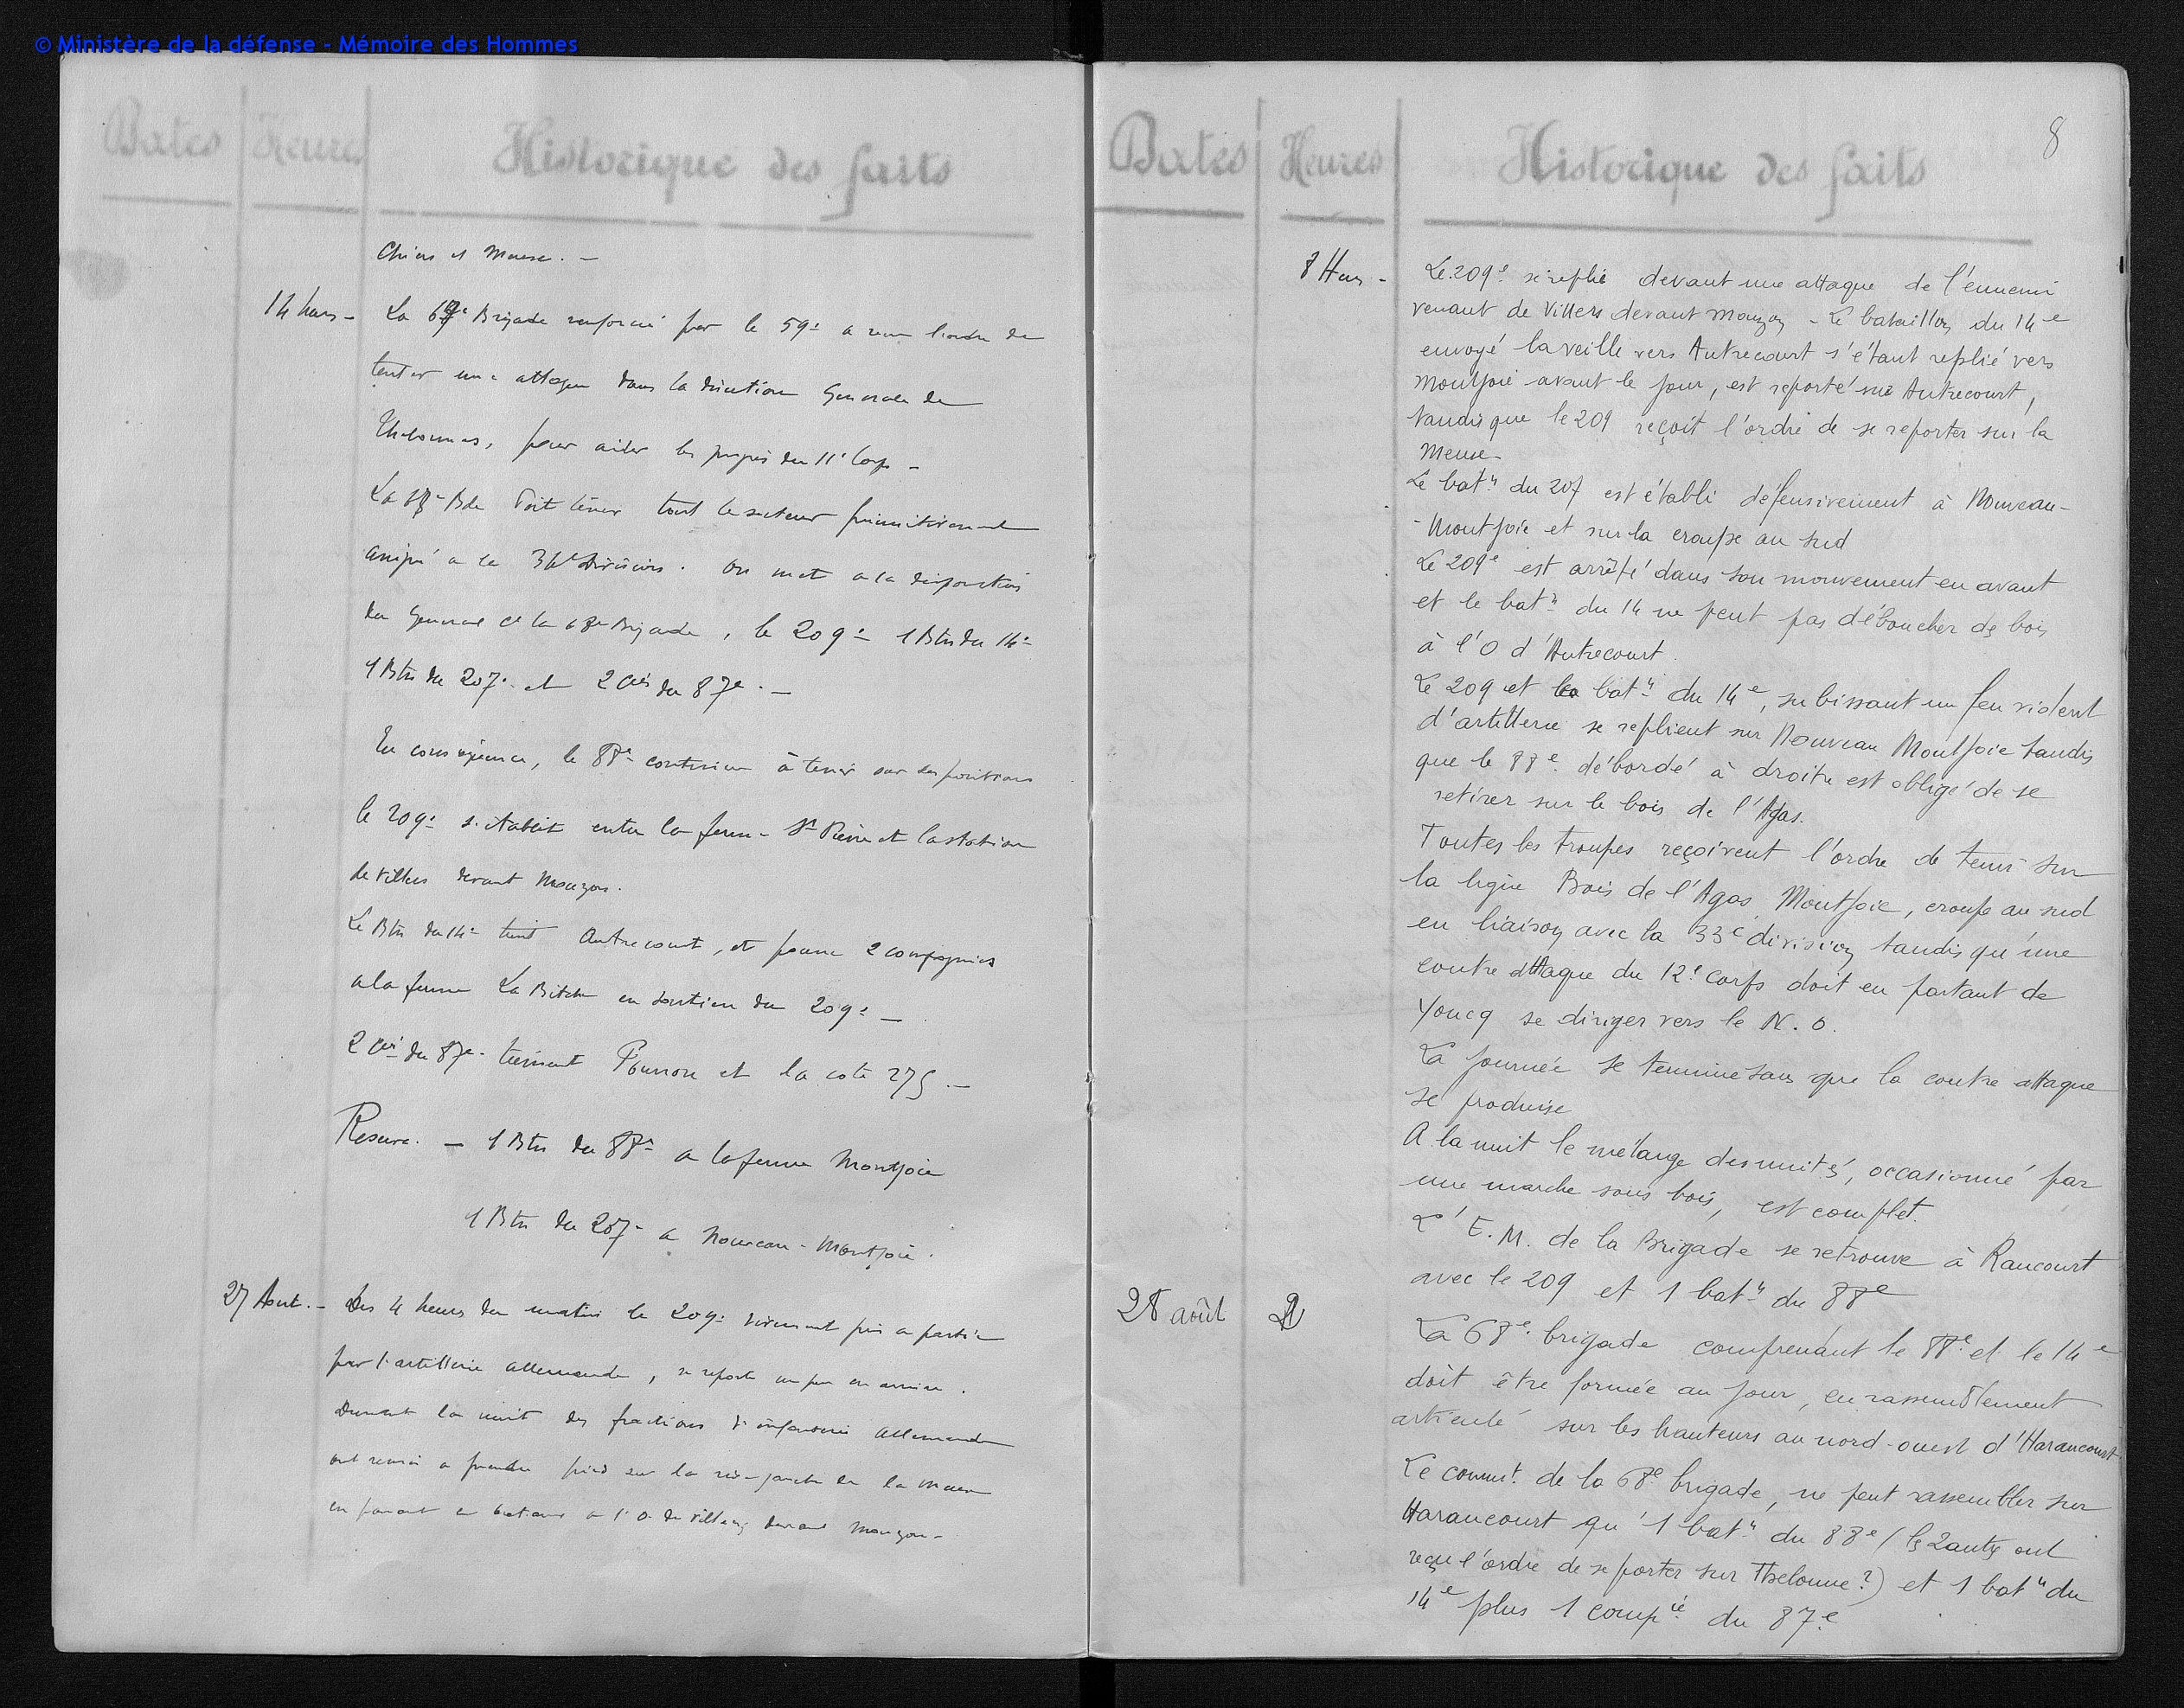 © Ministère de la défense - Mémoire des Hommes
Dates Heures Historique des faits
Chiers et Meuse. -
14 heures - La 68e Brigade renforcée par le 59e a reçu l'ordre de
tenter une attaque dans la direction Générale de
Thelonnes, pour aider les progrès du 11e Corps -
La 68e Bde doit tenir tout le secteur primitivement
assigné à la 34e Division. On met à la disposition
du Général de la 68e Brigade, le 209e 1 Btn du 14e
1 Btn du 207e et 2 Cies du 87e. -
En conséquence, le 88e continue à tenir sur ses positions
le 209e s'établit entre la ferme St Pierre et la station
de Villers devant Mouzon.
Le Btn du 14e tient Autrecourt, et pousse 2 compagnies
a la ferme La Bitche en soutien du 209e -
2 Cies du 87e tiennent Pourron et la cote 275 -
Reserve. - 1 Btn du 88e a la ferme Montjoie
1 Btn du 207e a Nouveau-Montjoie.
27 Aout. - Dès 4 heures du matin le 209e vivement pris a partie
par l'artillerie allemande, se reporte un peu en arrière.
Durant la nuit des fractions d'infanterie allemande
ont réussi a prendre pied sur la rive gauche de la Meuse
en passant en bateaux a l'O. de Villers devant Mouzon -
8
Dates Heures Historique des faits
8 Hres - Le 209e se replie devant une attaque de l'ennemi
venant de Villers devant Mouzon - Le bataillon du 14e
envoyé la veille vers Autrecourt s'étant replié vers
Montjoie avant le jour, est reporté sur Autrecourt,
tandis que le 209 reçoit l'ordre de se reporter sur la
Meuse -
Le batn du 207 est établi défensivement à Nouveau-
-Montjoie et sur la croupe au sud
Le 209e est arrêté dans son mouvement en avant
et le batn du 14 ne peut pas déboucher des bois
à l'O d'Autrecourt.
Le 209 et le batn du 14e, subissant un feu violent
d'artillerie se replient sur Nouveau Montjoie tandis
que le 88e débordé à droite est obligé de se
retirer sur le bois de l'Agas.
Toutes les troupes reçoivent l'ordre de tenir sur
la ligne Bois de l'Agas, Montjoie, croupe au sud
en liaison avec la 33e division tandis qu'une
contre attaque du 12e corps doit en partant de
Yoncq se diriger vers le N. O.
La journée se termine sans que la contre attaque
se produise
A la nuit le mélange des unités, occasionné par
une marche sous bois, est complet.
L'E. M. de la Brigade se retrouve à Raucourt
avec le 209 et 1 batn du 88e
28 août La 68e brigade comprenant le 88e et le 14e
doit être formée au jour, en rassemblement
articulé sur les hauteurs au nord-ouest d'Haraucourt
Le commt. de la 68e brigade, ne peut rassembler sur
Haraucourt qu'1 batn du 88e (les 2 autres ont
reçu l'ordre de se porter sur Thelonne?) et 1 batn du
14e plus 1 compie du 87e